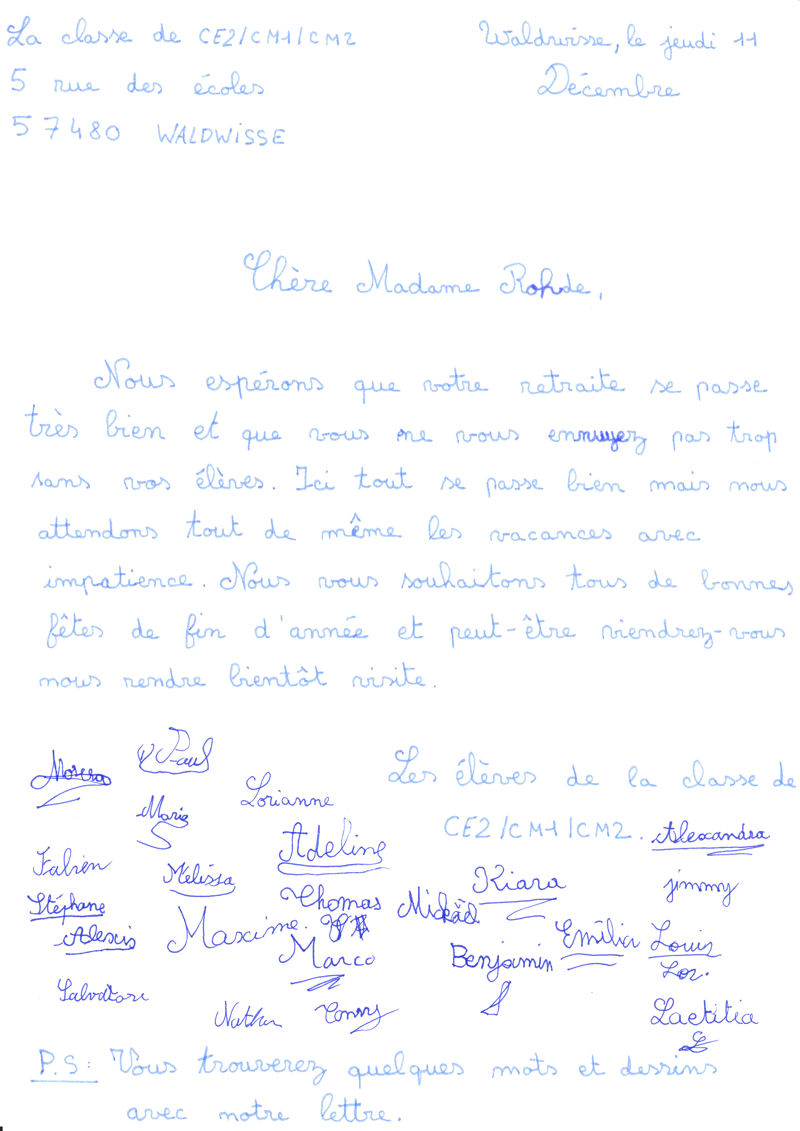 La classe de CE2/CM1/CM2
5 rue des écoles
57480 WALDWISSE
Waldwisse, le jeudi 11
Décembre
Chère Madame Rohde,
Nous espérons que votre retraite se passe
très bien et que vous ne vous ennuyez pas trop
sans vos élèves. Ici tout se passe bien mais nous
attendons tout de même les vacances avec
impatience. Nous vous souhaitons tous de bonnes
fêtes de fin d'année et peut-être viendrez-vous
nous rendre bientôt visite.
Les élèves de la classe de
CE2/CM1/CM2.
Paul
Lorianne
Marie
Adeline
Alexandra
Fabien
Mélissa
Kiara
Jimmy
Stéphane
Thomas
Mickaël
Alexis
Maxime.
Marco
Benjamin
Emilie
Louis
Lor.
Salvatore
Nathan
Conny
Laetitia
P.S: Vous trouverez quelques mots et dessins
avec notre lettre.